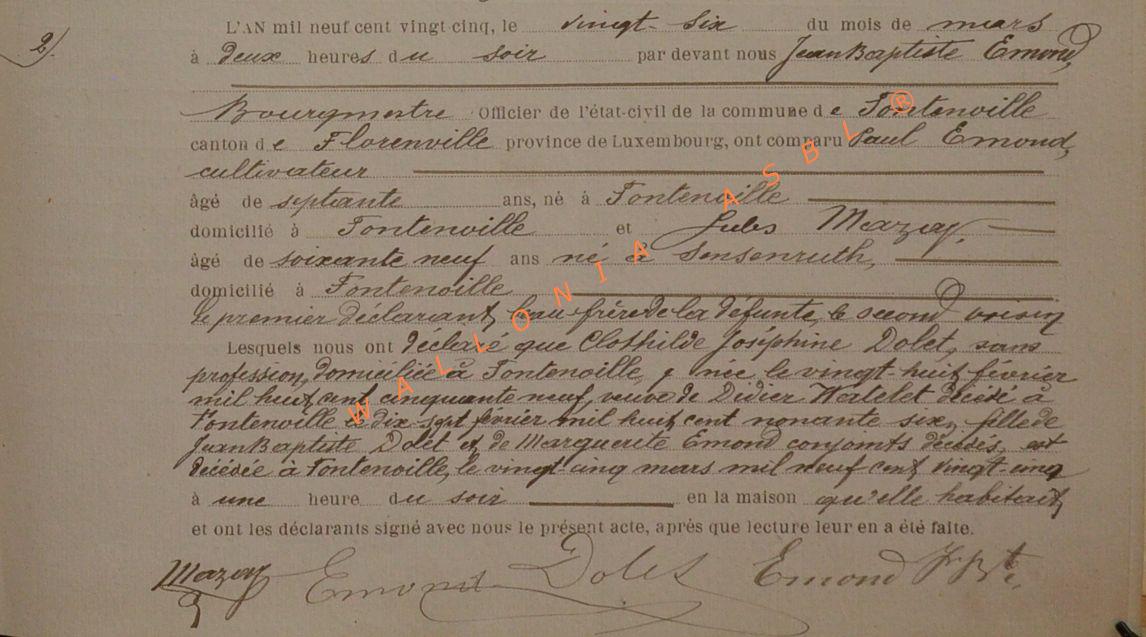 2)
L'AN mil neuf cent vingt-cinq, le vingt-six du mois de mars
à deux heures du soir par devant nous Jean Baptiste Emond,
Bourgmestre Officier de l'état-civil de la commune de Fontenoille
canton de Florenville province de Luxembourg, ont comparu Paul Emond,
cultivateur
âgé de septante ans, né à Fontenoille
domicilié à Fontenoille et Jules Mazay,
âgé de soixante neuf ans né à Sensenruth,
domicilié à Fontenoille
le premier déclarant, beau-frère de la défunte, le second voisin
Lesquels nous ont déclaré que Clothilde Joséphine Dolet, sans
profession, domiciliée à Fontenoille, y née le vingt-huit février
mil huit cent cinquante neuf, veuve de Didier Hatelet décédé à
Fontenoille le dix-sept février mil huit cent nonante six, fille de
Jean Baptiste Dolet et de Marguerite Emond conjoints décédés, est
décédée à Fontenoille, le vingt-cinq mars mil neuf cent vingt-cinq
à une heure du soir en la maison qu'elle habitait,
et ont les déclarants signé avec nous le présent acte, après que lecture leur en a été faite.
Mazay Emond Dolet Emond J. Bte.
WALLONIA ASBL ®